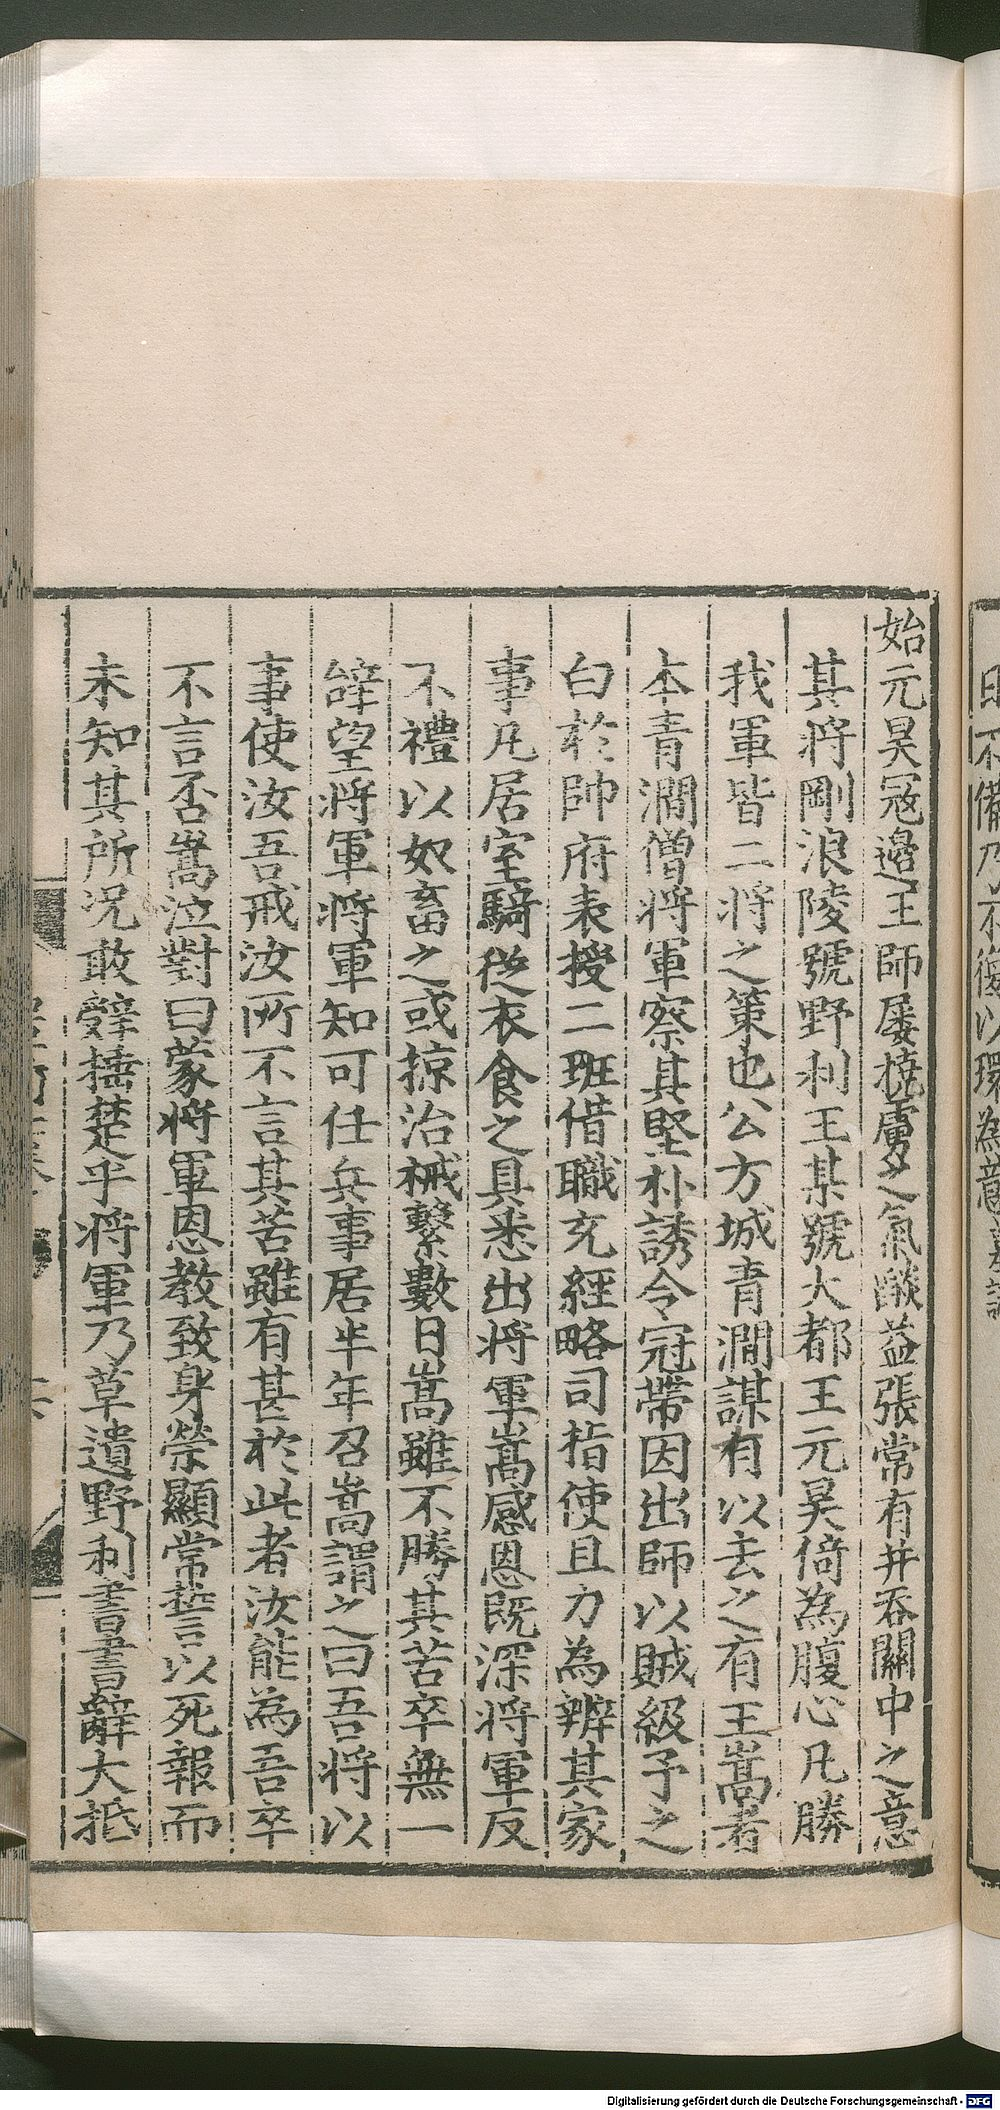 始元昊寇邉王師屡撓虜之氣燄益張常有并吞關中之意
其将剛浪陵號野利王某號大都王元昊倚為腹心凡勝
我軍皆二将之策也公方城青澗謀有以去之有王嵩者
本青澗僧将軍察其堅朴誘令冠帶因出師以賊級予之
白於帥府表授二班借職充經略司指使且力為辨其家
事凡居室騎從衣食之具悉出将軍嵩感恩既深将軍反
不禮以奴畜之或掠治械繫數日嵩雖不勝其苦卒無一
辝望将軍将軍知可任兵事居半年召嵩謂之曰吾将以
事使汝吾戒汝所不言其苦雖有甚於此者汝能為吾卒
不言否嵩泣對曰蒙将軍恩教致身榮顯常誓以死報而
未知其所况敢辤捶楚乎将軍乃草遺野利書書辭大抵
六
Digitalisierung gefördert durch die Deutsche Forschungsgemeinschaft - DFG